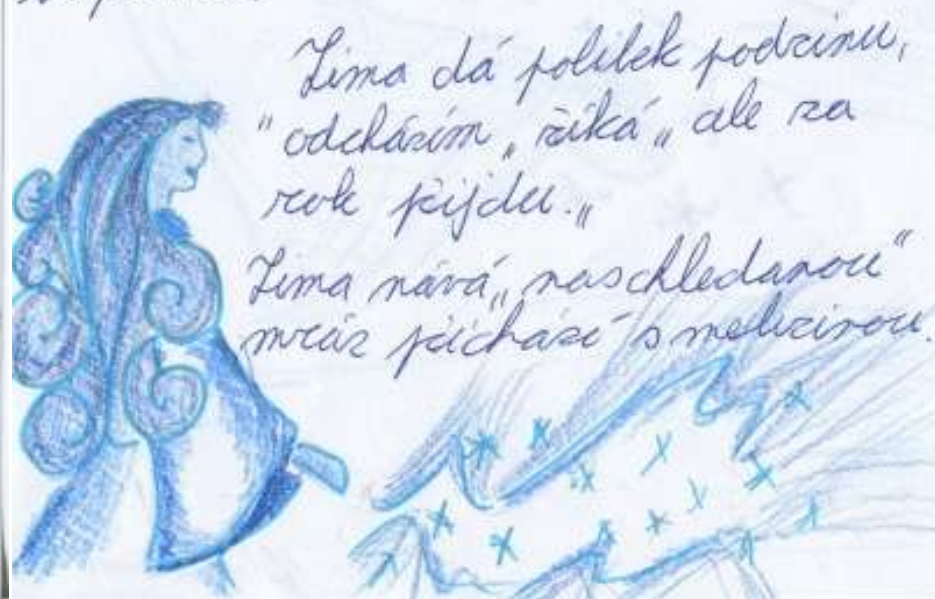 Zima dá polibek podzimu,
"odcházím„ říká „ ale za
rok přijdu.„
Zima mává „ naschledanou"
mráz přichází s meluzinou.